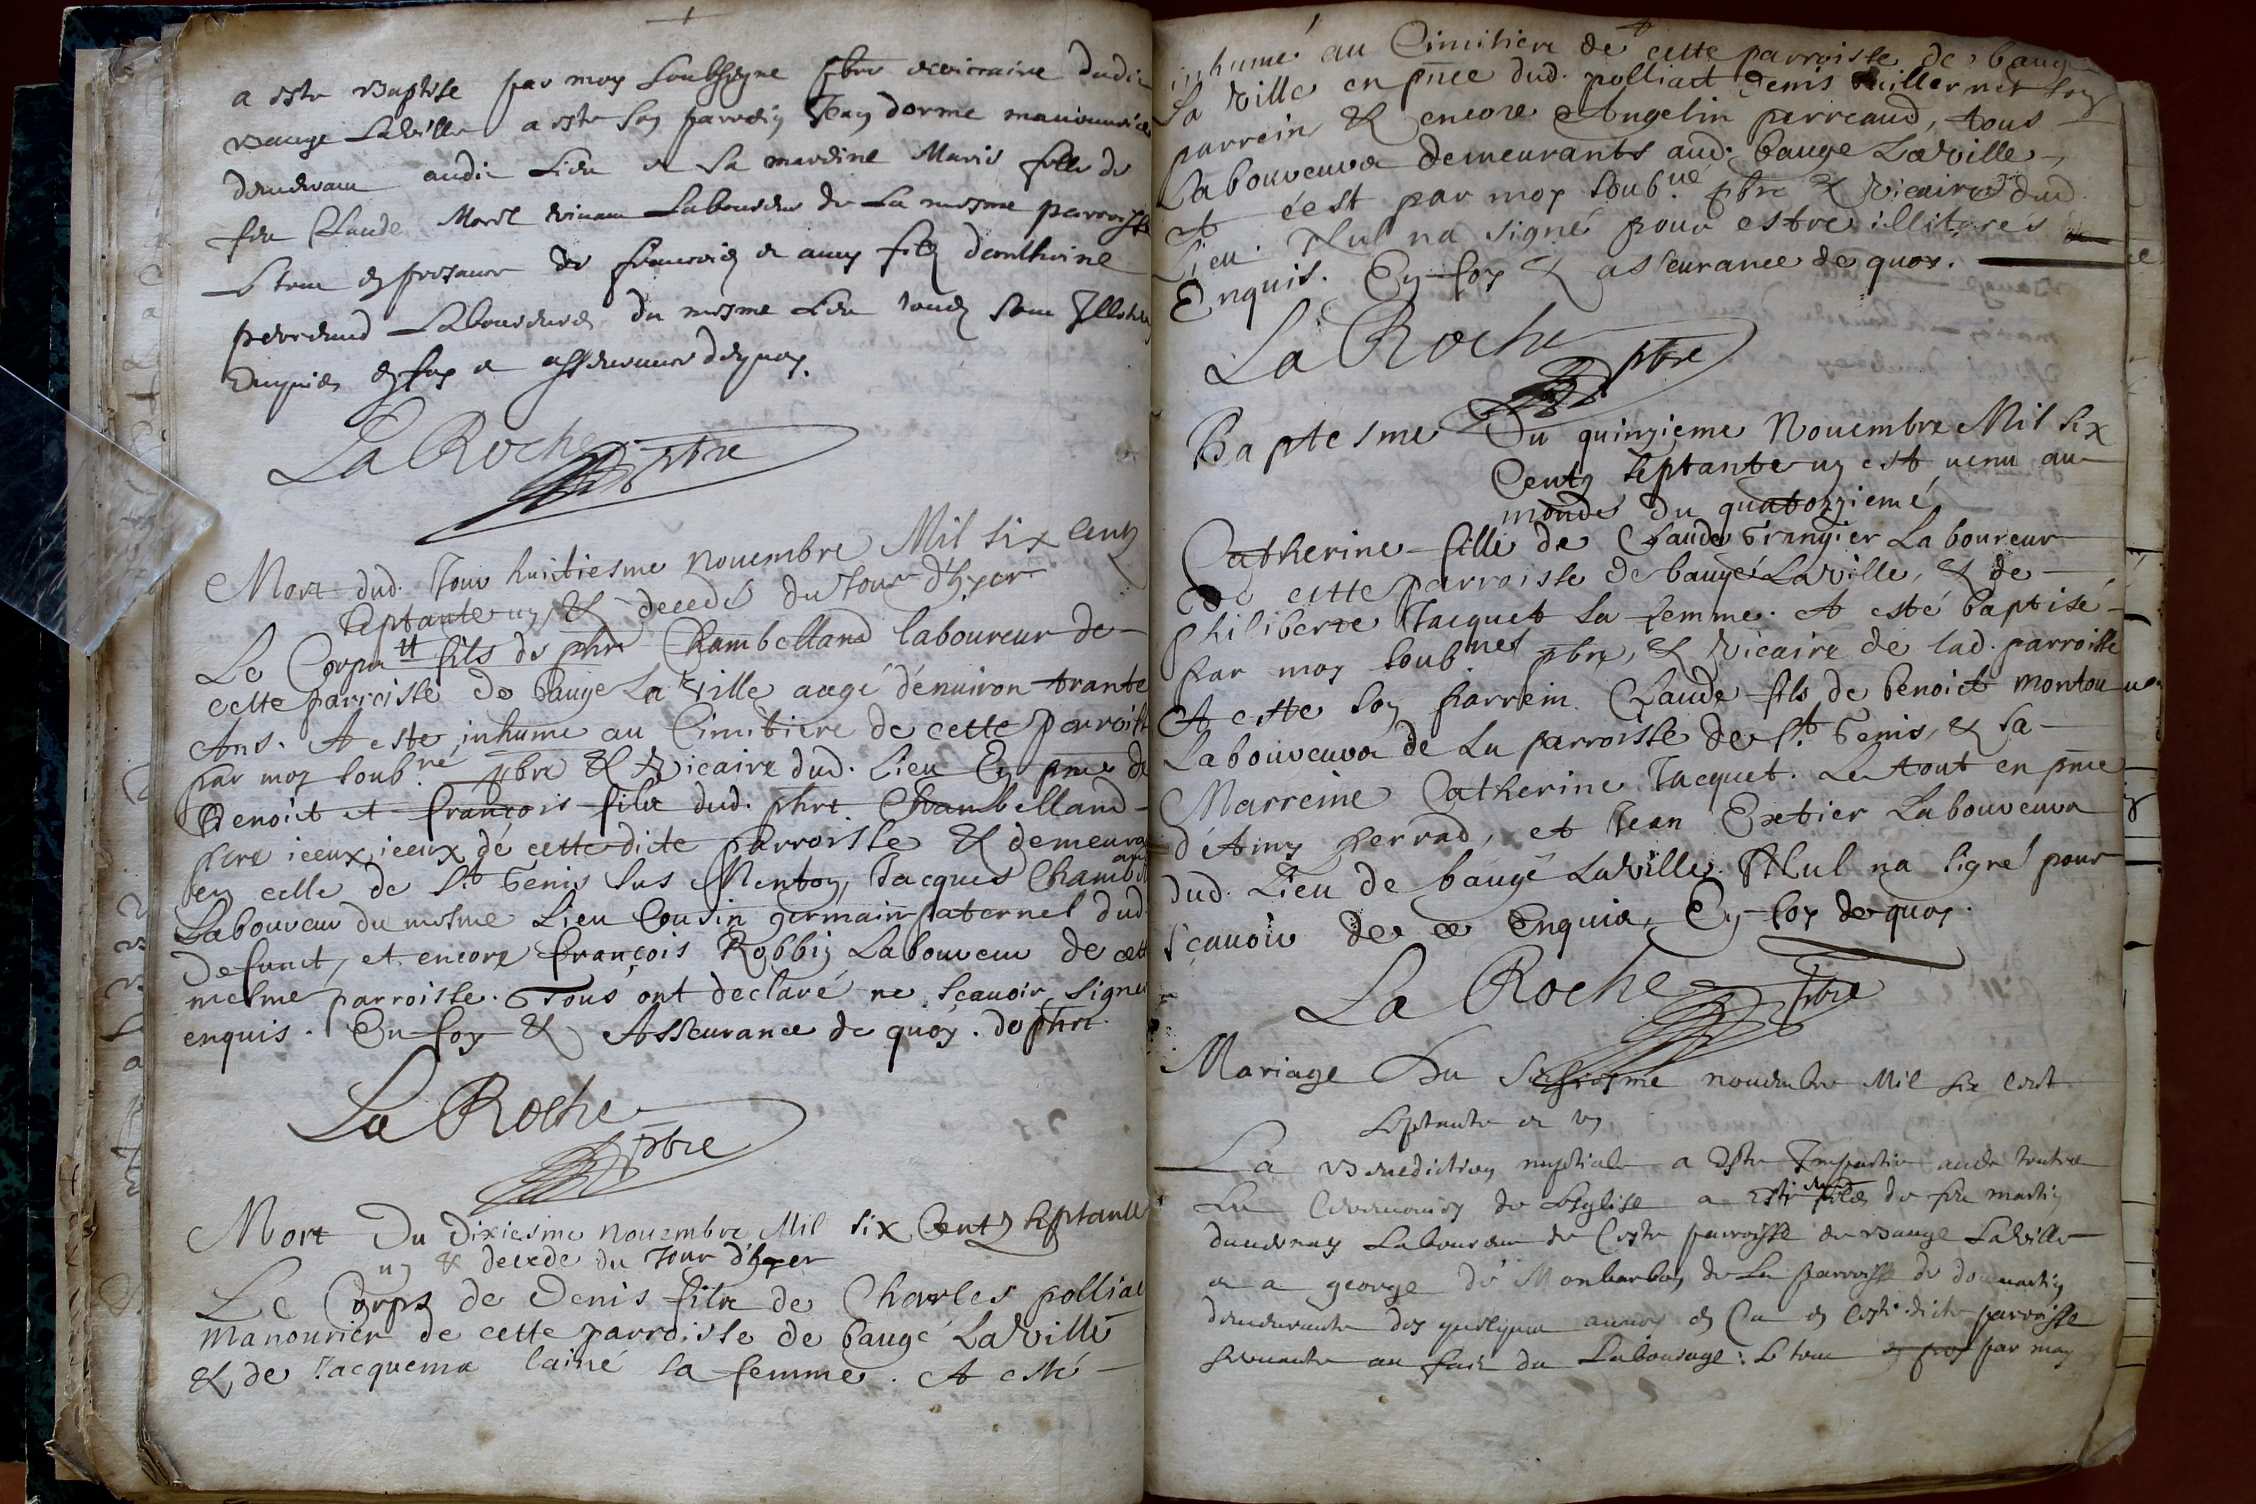 a este Baptise par moy Soubsigne pbre et vicaire dudi
Bauge La Ville a este son parrein Jean dorme manouvrier
demeurant audit Lieu et sa mareine Marie fille de
feu Claude Morel vivant Laboureur de La mesme parroisse
Le tout en presance de francois et amy filz danthoine
perreaud Laboureurs du mesme Lieu tous sont Illiteres
Enquis En foy et asseurance de quoy.
La Roche pbre
Mort dud. Jour huictiesme novembre Mil six Centz
septante un, & decedé du Jour d'hyer
Le Corps fils de phrt Chambelland laboureur de
cette parroisse de baugé La Ville aagé d'environ trante
Ans. A esté inhumé au Cimitiere de cette parroisse
par moy soub.né pbre & Vicaire dud. Lieu En pnce de
Benoict et françois filz dud. phrt Chambelland
pere iceux iceux de cette dicte parroisse & demeurants
en celle de St Genis sus Menton, Jacques Chambelland
Laboureur du mesme Lieu Cousin germain paternel dud.
Defunct, et encore François Robbin Laboureur de cette
mesme parroisse. Tous ont declaré ne sçavoir signer
enquis. En foy & Asseurance de quoy. de phrt
La Roche pbre
Mort Du dixiesme novembre Mil six Centz septante
un & decedé du Jour d'hyer
Le Corps de Denis filz de Charles polliat
Manourier de cette parroisse de baugé La Ville
& de Jacquema lainé sa femme. A esté
inhumé au Cimitiere de cette parroisse de baugé
La Ville en pnce dud. polliact Denis Vuillermet son
parrein & encore Angelin perreaud, tous
Laboureurs demeurants aud. bauge La Ville
Et c'est par moy soub.né pbre & Vicaire dud.
Lieu. Nul na signé pour estre illiterés
Enquis. En foy & asseurance de quoy.
La Roche pbre
Baptesme Du quinzieme Novembre Mil six
Centz septante un est venu au
monde du quatorzieme
Catherine fille de Claude Grangier Laboureur
de cette parroisse de baugé La Ville, & de
philiberte Jacquet sa femme. A esté baptisé
par moy soub.nes pbre, & Vicaire de lad. parroisse
A esté son parrein Claude fils de benoict
Laboureur de La parroisse de St Genis, & sa
Marreine Catherine Jacquet. Le tout en pnce
d'Amy perrad, et Jean Laboureur
dud. Lieu de baugé La Ville. Nul na signé pour
sçavoir de ce Enquis, En foy de quoy.
La Roche pbre
Mariage Du novembre Mil six cent
septante et un
La Benediction nuptiale a este Impartie avec toutes
Les Ceremonies de Leglise a filz de feu martin
Laboureur de Ceste parroisse de Bauge La Ville
et a george de Monbarbon de La parroisse de dommartin
demeurante des quelques annees en Ca en ceste dicte parroisse
servante au faict du Labourage: Le tout par moy